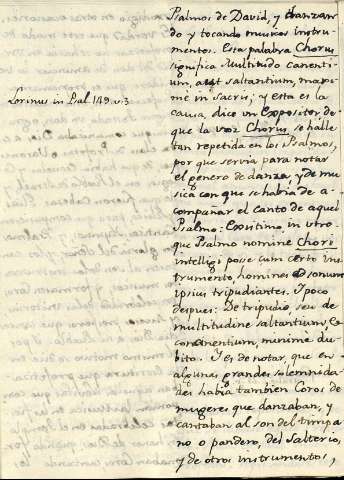 Psalmos de David, y danzan
do y tocando musicos instru-
mentos. Esta palabra Chorus
significa Multitudo canenti-
um, aut saltantium, maxi-
me in sacris; y esta es la
Lorinus in Psal. 149. v. 3
causa, dice un Expositor de
que la voz Chorus, se halle
tan repetida en los Psalmos,
por que servia para notar
el genero de danza, y de mu
sica con que se habia de a-
compañar el canto de aquel
Psalmo: Existimo in utro-
que Psalmo nomine Chori
intelligi posse cum certo ins
trumento, homines ad sonum
ipsius tripudiantes. I poco
despues: De tripudio, seu de
multitudine saltantium, &
concinentium, minime du-
bito. Y es de notar, que en
algunas grandes solemnida
des habia tambien Coros de
mugeres que danzaban, y
cantaban al son del timpa
no o pandero, del Salterio,
y de otros instrumentos,